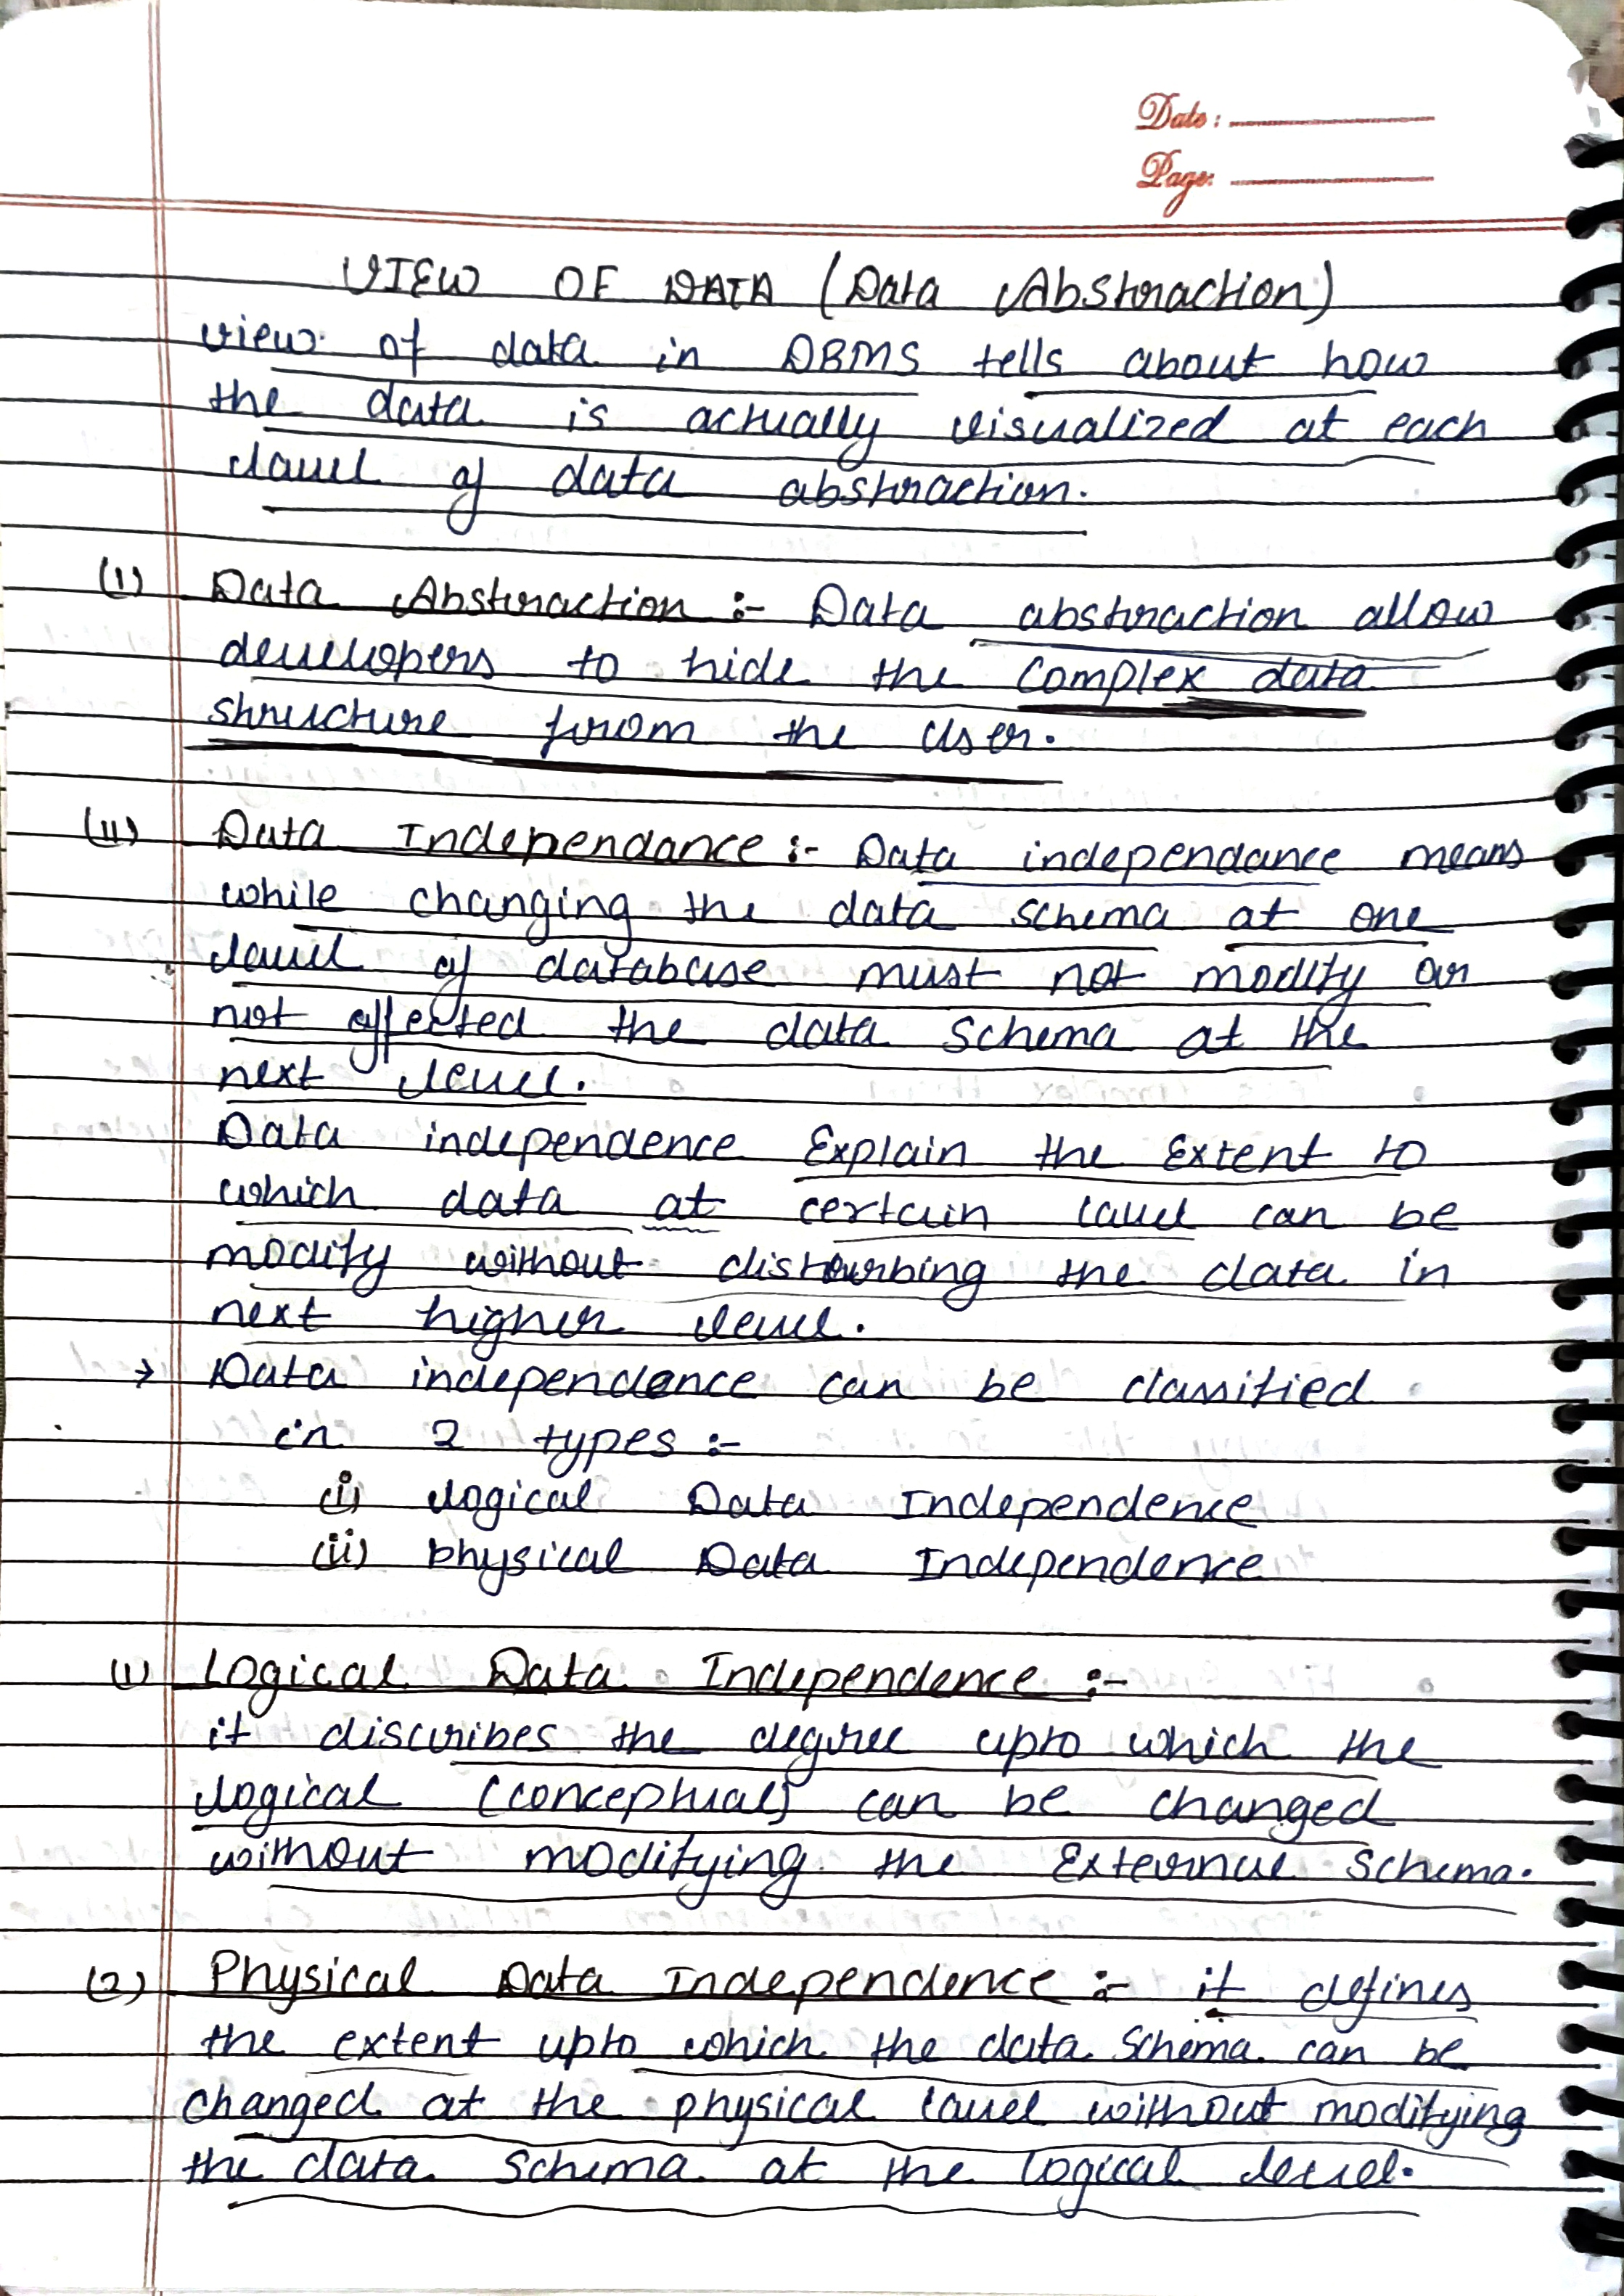 Date :
Page:
VIEW OF DATA (Data Abstraction)
view of data in DBMS tells about how
the data is actually visualized at each
lavel of data abstraction.
(I) Data Abstraction :- Data abstraction allow
developers to hide the complex data
structure from the User.
(II) Data Independance :- Data independance means
while changing the data schema at one
lavel of database must not modify or
not affected the data schema at the
next level.
Data independence Explain the Extent to
which data at certain lavel can be
modify without distrurbing the data in
next higher level.
→ Data independence can be classified
in 2 types :-
(i) logical Data Independence
(ii) physical Data Independence
(1) Logical Data Independence :-
it discribes the degree upto which the
logical (conceptual) can be changed
without modifying the External Schema.
(2) Physical Data Independence :- it defines
the extent upto which the data Schema can be
changed at the physical lavel without modifying
the data Schema at the logical level.